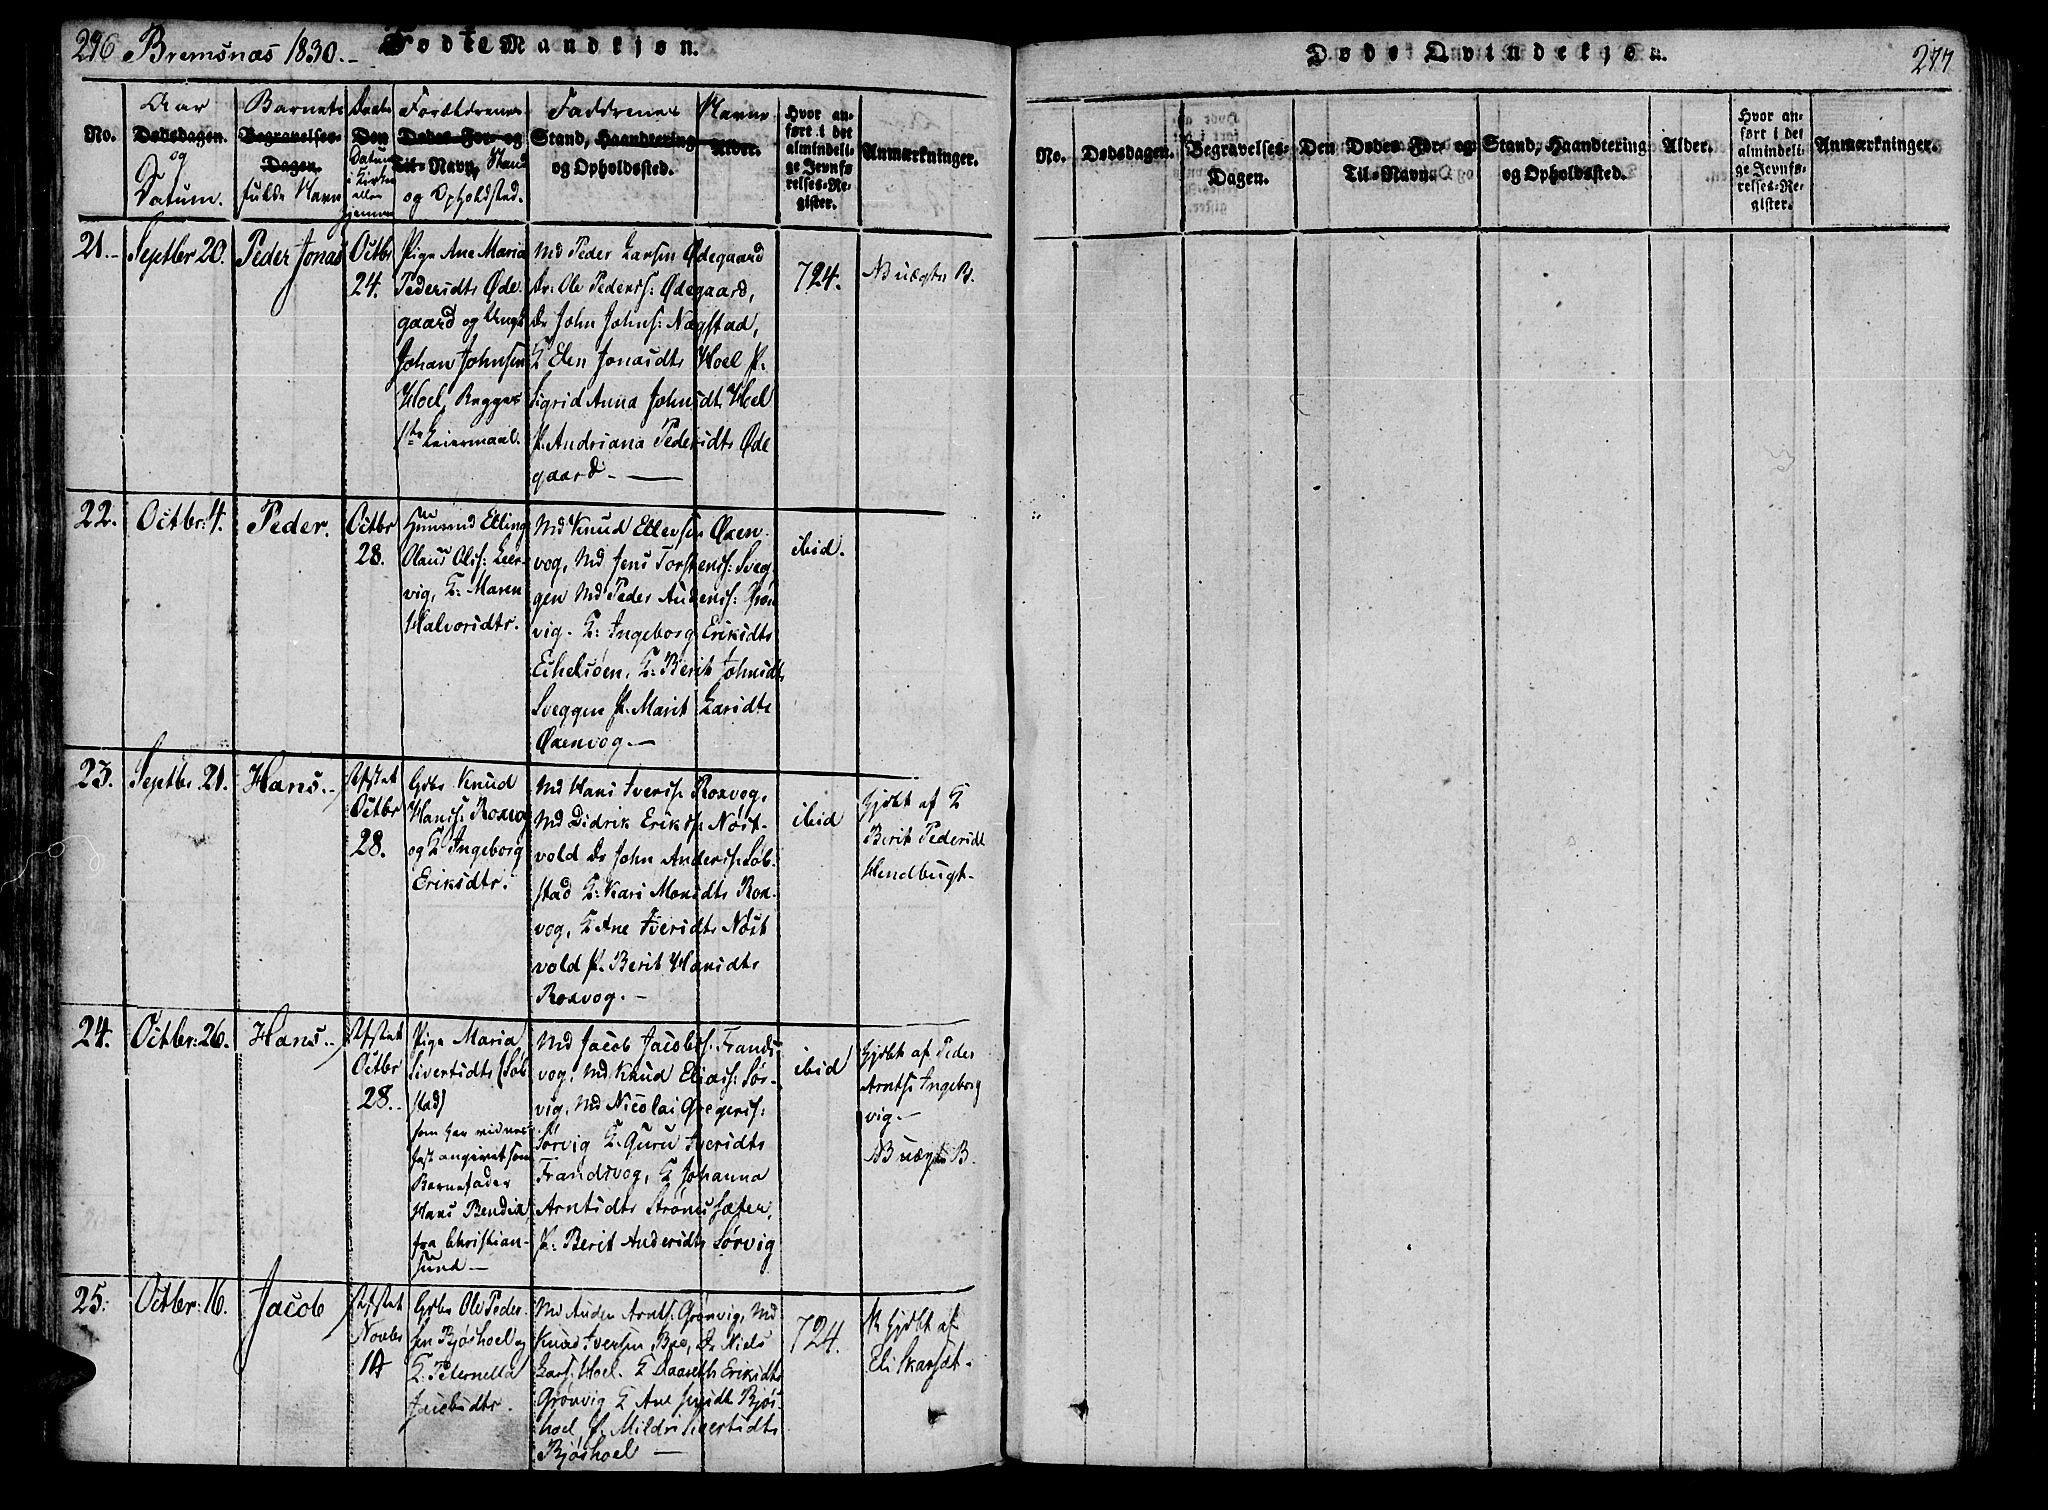 296 Bremsnæs 1830.- Fødte Mandkjøn.
No.
Aar
Dødsdagen.
og
Datum.
Barnets
Begravelses-
Dagen.
fulde Navn
Døbe
Den
Datum
i Kirken
eller
hjemme
Forældrenes
Dødes For- og
Til-Navn, Stand
og Opholdsted.
Faddrenes Navne
Stand, Haandtering
og Opholdssted.
Alder.
Hvor an-
ført i det
almindeli-
ge Jevnfø-
relses-Re-
gister.
Anmærkninger.
21.-
Septbr 20.
Peder Jonas
Octbr
24.
Pige Ane Maria
Pedersdtr Øde-
gaard og Ungk
Johan Johnsen
Hoel, Begges
1ste Leiermaal.
Md Peder Larsen Ødegaard
Dr: Ole Peders: Ødegaard,
Dr John Johns: Nægstad,
K Elen Jonasdtr Hoel P.
Sigrid Anna Johnsdtr Hoel
P. Andriana Pedersdtr Øde
gaard. —
724.
NB uægte B.
22.
Octbr: 4.
Peder.
Octbr
28.
Huusmd Elling
Olaus Ols: Leer-
vig, K: Maren
Halvorsdtr.
Md Knud Ellevsen Øxen-
vog, Md Jens Torstens: Sveg-
gen Md Peder Anders: Grøn
vig. K: Ingeborg Eriksdtr
Eskelsøen, K: Berit Johnsdtr
Sveggen P. Marit Larsdtr
Øxenvog.—
ibid.
23.
Septbr. 21.
Hans.
Afstet
Octbr
28.
Gdbr Knud
Hanss: Roxvog
og K Ingeborg
Eriksdtr.
Md Hans Ivers: Roxvog,
Md Didrik Eriks: Nøst-
vold Dr John Anders: Søb-
stad K: Kari Monsdtr Rox-
vog, K Ane Iversdtr Nøst
vold P. Berit Hansdtr
Roxvog. —
ibid
Hjdbt af K
Berit Pedersdt
Hendbugt.
24.
Octbr: 26.
Hans.
Afstet
Octbr
28.
Pige Maria
Sivertsdtr (Søb
stad)
som har vidnes
fast angivet som
Barnefader
Hans Bendix
fra Christian-
sund—
Md Jacob Jacobs: Frands-
vog, Md Knud Elias: Sør-
vig, Md Nicolai Gregers:
Sørvig K Guru Iversdtr
Frandsvog, K Johanna
Arntsdtr Strømssæter,
P: Berit Andersdtr Sørvig
ibid
Hjdbt af Peder
Arnts: Ingeborg
vig.—
NB uægte B.
25.
Octbr: 16.
Jacob
Afstet
Novbr
14
Gdbr Ole Peder-
sen Bjøshoel og
K Peternella
Jacobsdtr.
Md Anders Arnts: Grønvig, Md
Knud Iversen Bøe, Dr Niels
Lars: Hoel. K Daareth Eriksdtr
Grønvig K Ane Jensdt Bjøs-
hoel, P. Mildri Sivertsdtr
Bjøshoel —
724.
N Hjdbt af
Eli Skarsdt.
Døde Qvindekjøn.
277
No.
Dødsdagen.
Begravelses-
Dagen.
Den Dødes For- og
Til-Navn.
Stand, Haandtering
og Opholdssted.
Alder.
Hvor an-
ført i det
almindeli-
ge Jevnfø-
relses-Re-
gister.
Anmærkninger.